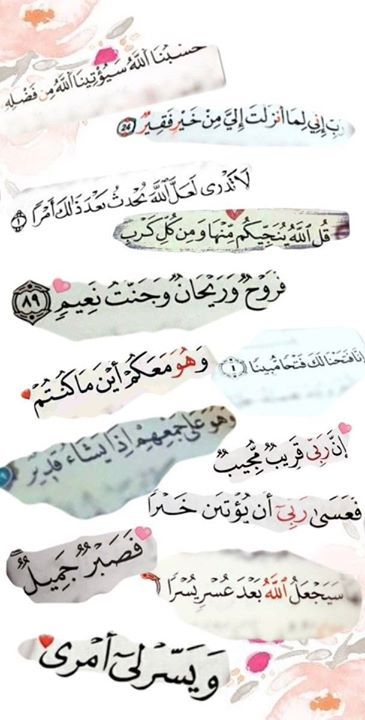 حَسْبُنَا اللَّهُ سَيُؤْتِينَا اللَّهُ مِن فَضْلِهِ
رَبِّ إِنِّي لِمَا أَنزَلْتَ إِلَيَّ مِنْ خَيْرٍ فَقِيرٌ ٢٤
لَا تَدْرِى لَعَلَّ اللَّهَ يُحْدِثُ بَعْدَ ذَٰلِكَ أَمْرًا ١
قُلِ اللَّهُ يُنَجِّيكُم مِّنْهَا وَمِن كُلِّ كَرْبٍ
فَرَوْحٌ وَرَيْحَانٌ وَجَنَّتُ نَعِيمٍ ٨٩
إِنَّا فَتَحْنَا لَكَ فَتْحًا مُّبِينًا ١
وَهُوَ مَعَكُمْ أَيْنَ مَا كُنتُمْ
وَهُوَ عَلَىٰ جَمْعِهِمْ إِذَا يَشَاءُ قَدِيرٌ
إِنَّ رَبِّى قَرِيبٌ مُّجِيبٌ
فَعَسَىٰ رَبِّىٓ أَن يُؤْتِيَنِ خَيْرًا
فَصَبْرٌ جَمِيلٌ
سَيَجْعَلُ اللَّهُ بَعْدَ عُسْرٍ يُسْرًا
وَيَسِّرْ لِىٓ أَمْرِى